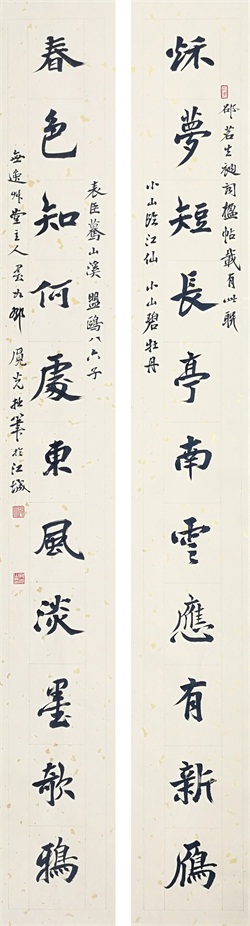 邵茗生衲詞楹帖載有此聯
秋夢短長亭南雲應有新雁
小山臨江仙 小山碧牡丹
表臣驀山溪 盟鷗八六子
春色知何處東風淡墨欹鴉
無邊艸堂主人 光 筆於江城